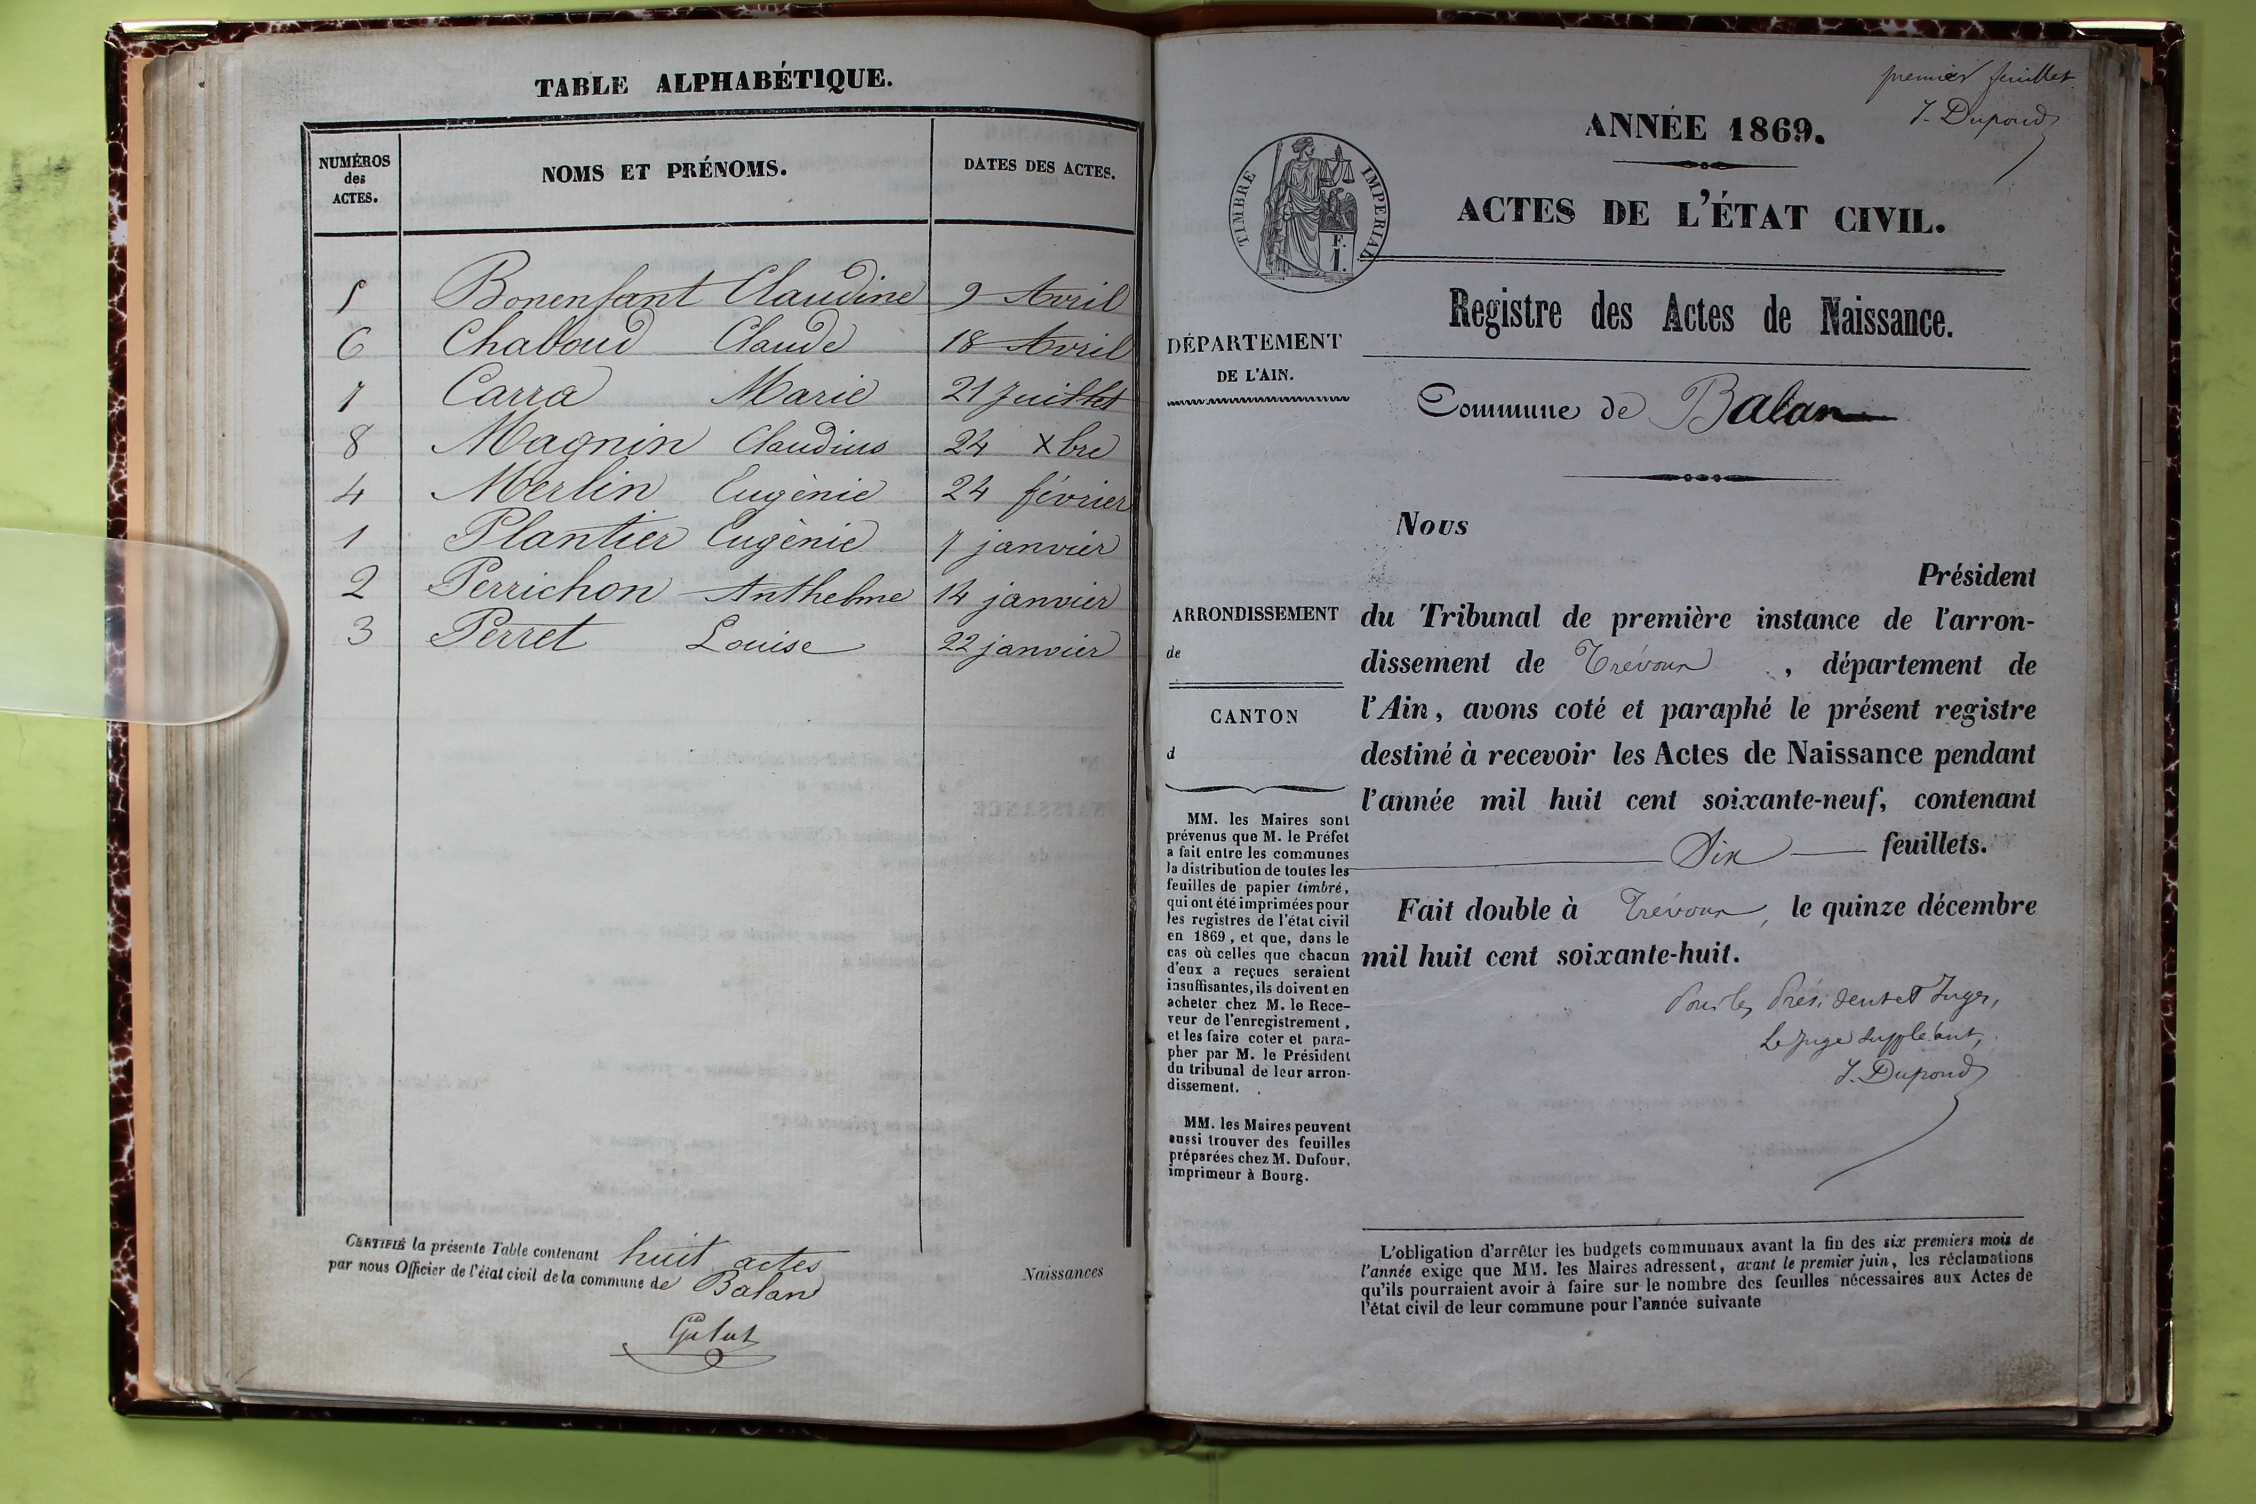 TABLE ALPHABÉTIQUE.
NUMÉROS
des
ACTES.
NOMS ET PRÉNOMS.
DATES DES ACTES.
5 Bonenfant Claudine 9 Avril
6 Chaboud Claude 18 Avril
7 Carra Marie 21 Juillet
8 Magnin Claudius 24 Xbre
4 Merlin Eugènie 24 février
1 Plantier Eugènie 7 janvier
2 Perrichon Anthelme 14 janvier
3 Perret Louise 22 janvier
CERTIFIÉ la présente Table contenant huit actes
par nous Officier de l'état civil de la commune de Balan
Galut
Naissances
premier feuillet
J. Dupond
ANNÉE 1869.
TIMBRE IMPERIAL
F.
1.
ACTES DE L'ÉTAT CIVIL.
Registre des Actes de Naissance.
DÉPARTEMENT
DE L'AIN.
Commune de Balan
ARRONDISSEMENT
de
CANTON
d
MM. les Maires sont
prévenus que M. le Préfet
a fait entre les communes
la distribution de toutes les
feuilles de papier timbré,
qui ont été imprimées pour
les registres de l'état civil
en 1869, et que, dans le
cas où celles que chacun
d'eux a reçues seraient
insuffisantes, ils doivent en
acheter chez M. le Rece-
veur de l'enregistrement,
et les faire coter et para-
pher par M. le Président
du tribunal de leur arron-
dissement.
MM. les Maires peuvent
aussi trouver des feuilles
préparées chez M. Dufour,
imprimeur à Bourg.
Nous
Président
du Tribunal de première instance de l'arron-
dissement de Trévoux, département de
l'Ain, avons coté et paraphé le présent registre
destiné à recevoir les Actes de Naissance pendant
l'année mil huit cent soixante-neuf, contenant
Six feuillets.
Fait double à Trévoux, le quinze décembre
mil huit cent soixante-huit.
Pour les Président et Juges,
Le Juge suppléant,
J. Dupond
L'obligation d'arrêter les budgets communaux avant la fin des six premiers mois de
l'année exige que MM. les Maires adressent, avant le premier juin, les réclamations
qu'ils pourraient avoir à faire sur le nombre des feuilles nécessaires aux Actes de
l'état civil de leur commune pour l'année suivante